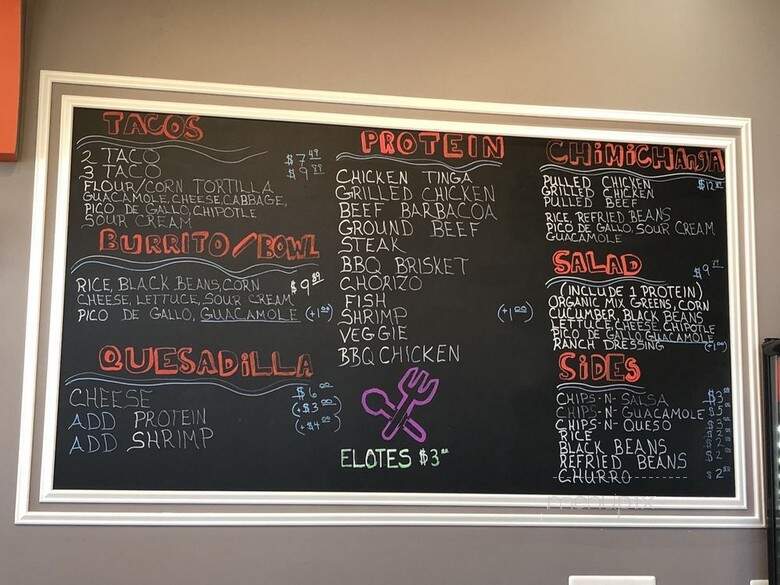 TACOS
2 TACO $7 49
3 TACO $9
FLOUR/CORN TORTILLA
GUACAMOLE, CHEESE, CABBAGE,
PICO DE GALLO, CHIPOTLE
SOUR CREAM
BURRITO/BOWL
RICE, BLACK BEANS, CORN $9 89
CHEESE, LETTUCE, SOUR CREAM
PICO DE GALLO, GUACAMOLE (+1 00)
QUESADILLA
CHEESE $6 00
ADD PROTEIN (+$3 00)
ADD SHRIMP (+$4 00)
PROTEIN
CHICKEN TINGA
GRILLED CHICKEN
BEEF BARBACOA
GROUND BEEF
STEAK
BBQ BRISKET
CHORIZO
FISH
SHRIMP (+1 00)
VEGGIE
BBQ CHICKEN
ELOTES $3
CHIMICHANGA
PULLED CHICKEN $12
GRILLED CHICKEN
PULLED BEEF
RICE, REFRIED BEANS
PICO DE GALLO, SOUR CREAM
GUACAMOLE
SALAD $9
(INCLUDE 1 PROTEIN)
ORGANIC MIX GREENS, CORN
CUCUMBER, BLACK BEANS
LETTUCE, CHEESE, CHIPOTLE
PICO DE GALLO, GUACAMOLE
RANCH DRESSING (+1 00)
SIDES
CHIPS-N-SALSA $3
CHIPS-N-GUACAMOLE $5
CHIPS-N-QUESO $3
RICE $2
BLACK BEANS $2
REFRIED BEANS $2
-CHURRO--------- $2
menupix